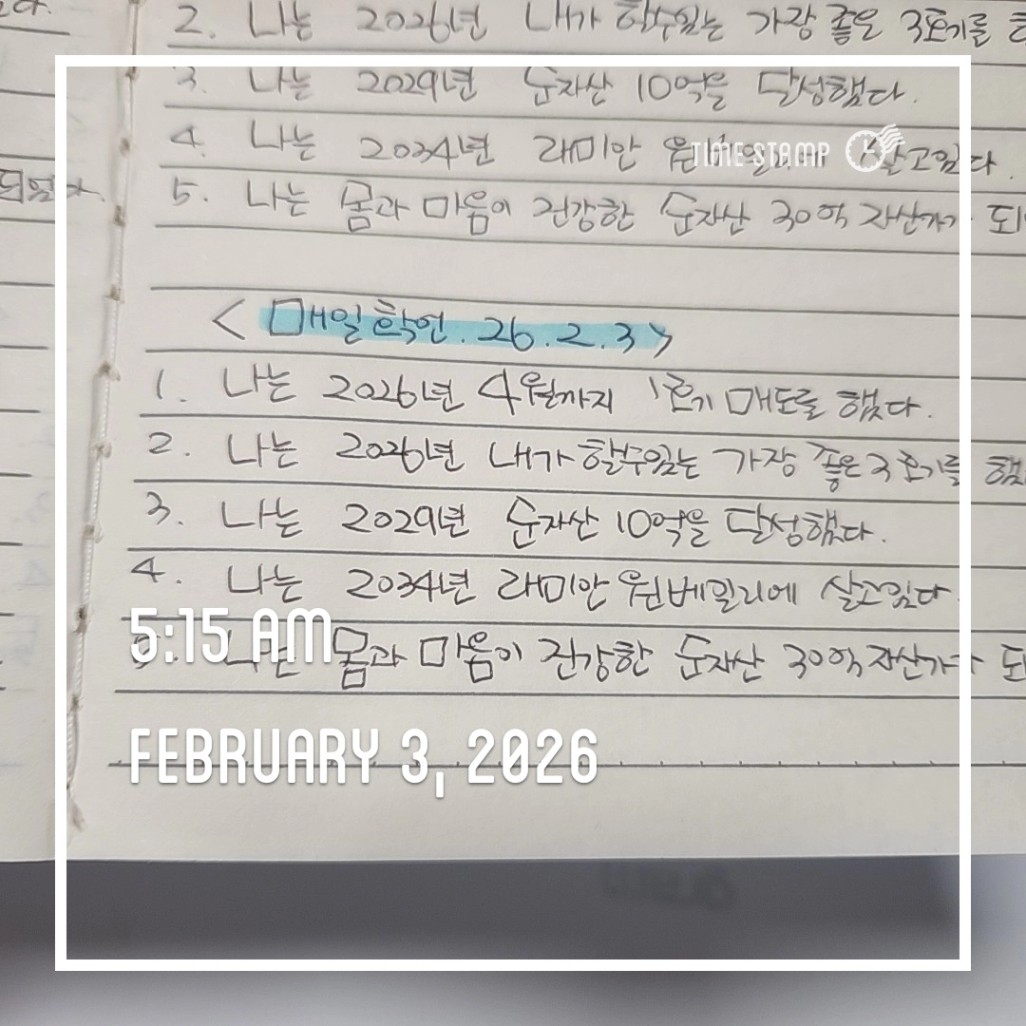 2. 나는 2026년 내가 할수있는 가장 좋은 3호기를
3. 나는 2029년 순자산 10억을 달성했다.
4. 나는 2034년 래미안 살고있다.
TIMESTAMP
되었다.
5. 나는 몸과 마음이 건강한 순자산 30억 자산가가 되
<매일확언. 26.2.3>
1. 나는 2026년 4월까지 1호기 매도를 했다.
2. 나는 2026년 내가 할수있는 가장 좋은 3호기를 했
3. 나는 2029년 순자산 10억을 달성했다.
4. 나는 2034년 래미안 원베일리에 살고있다
5:15 AM
5. 나는 몸과 마음이 건강한 순자산 30억 자산가가 되
FEBRUARY 3, 2026